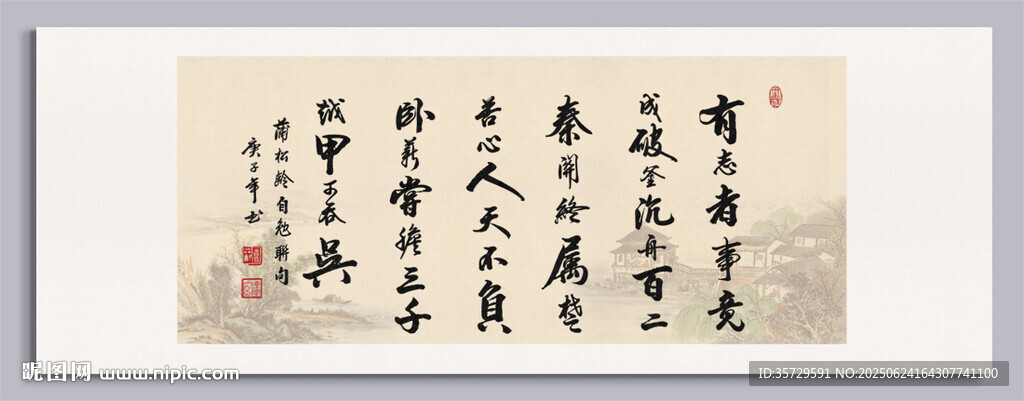 有志者事竟
成破釜沉舟百二
秦關終属楚
苦心人天不負
卧薪嘗膽三千
越甲可吞吳
蒲松齡自勉聯句
庚子年书
昵图网 www.nipic.com
ID:35729591 NO:20250624164307741100